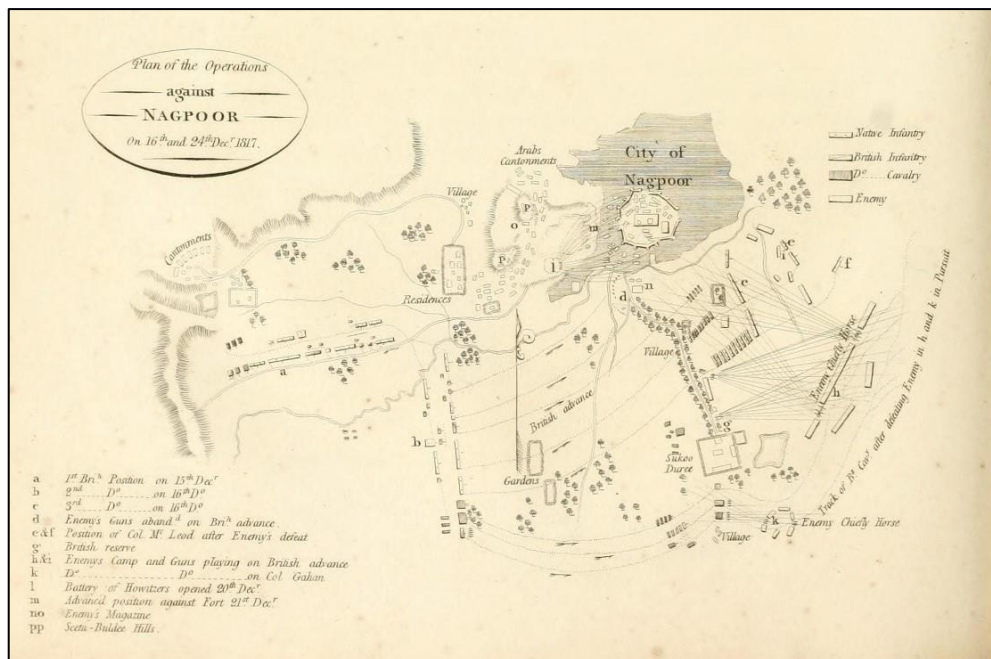 Plan of the Operations
against
NAGPOOR
On 16th and 24th Decr 1817.
Native Infantry
British Infantry
Do Cavalry
Enemy
City of
Nagpoor
Arabs
Cantonments
Village
Cantonments
Residences
p
o
p
l
m
n
d
c
e
f
a
b
Village
British advance
Gardens
g
Sukoo
Duree
Enemy Chiefly Horse
h
Track of Bs Cavy after defeating Enemy in h and k in Pursuit
k
Enemy Chiefly Horse
Village
a 1st Brih Position on 15th Decr
b 2nd Do on 16th Do
c 3rd Do on 16th Do
d Enemys Guns aband on Brih advance.
e&f Position of Col. Mc Leod after Enemy's defeat
g British reserve
h&i Enemys Camp and Guns playing on British advance
k Do Do on Col Gahan
l Battery of Howitzers opened 20th Decr
m Advanced position against Fort 21st Decr
no Enemy's Magazine
pp Seeta-Buldee Hills.